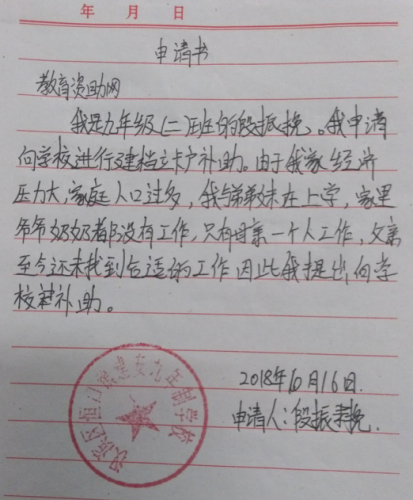 年 月 日
申请书
教育资助网
我是九年级(二)班的段振挽。我申请
向学校进行建档立卡户补助。由于我家经济
压力大,家庭人口过多,我与弟弟妹在上学,家里
爷爷奶奶都没有工作,只有母亲一个人工作,父亲
至今还未找到合适的工作因此我提出向学
校 补助。
九年制学校
2018年10月16日.
申请人:段振 挽.